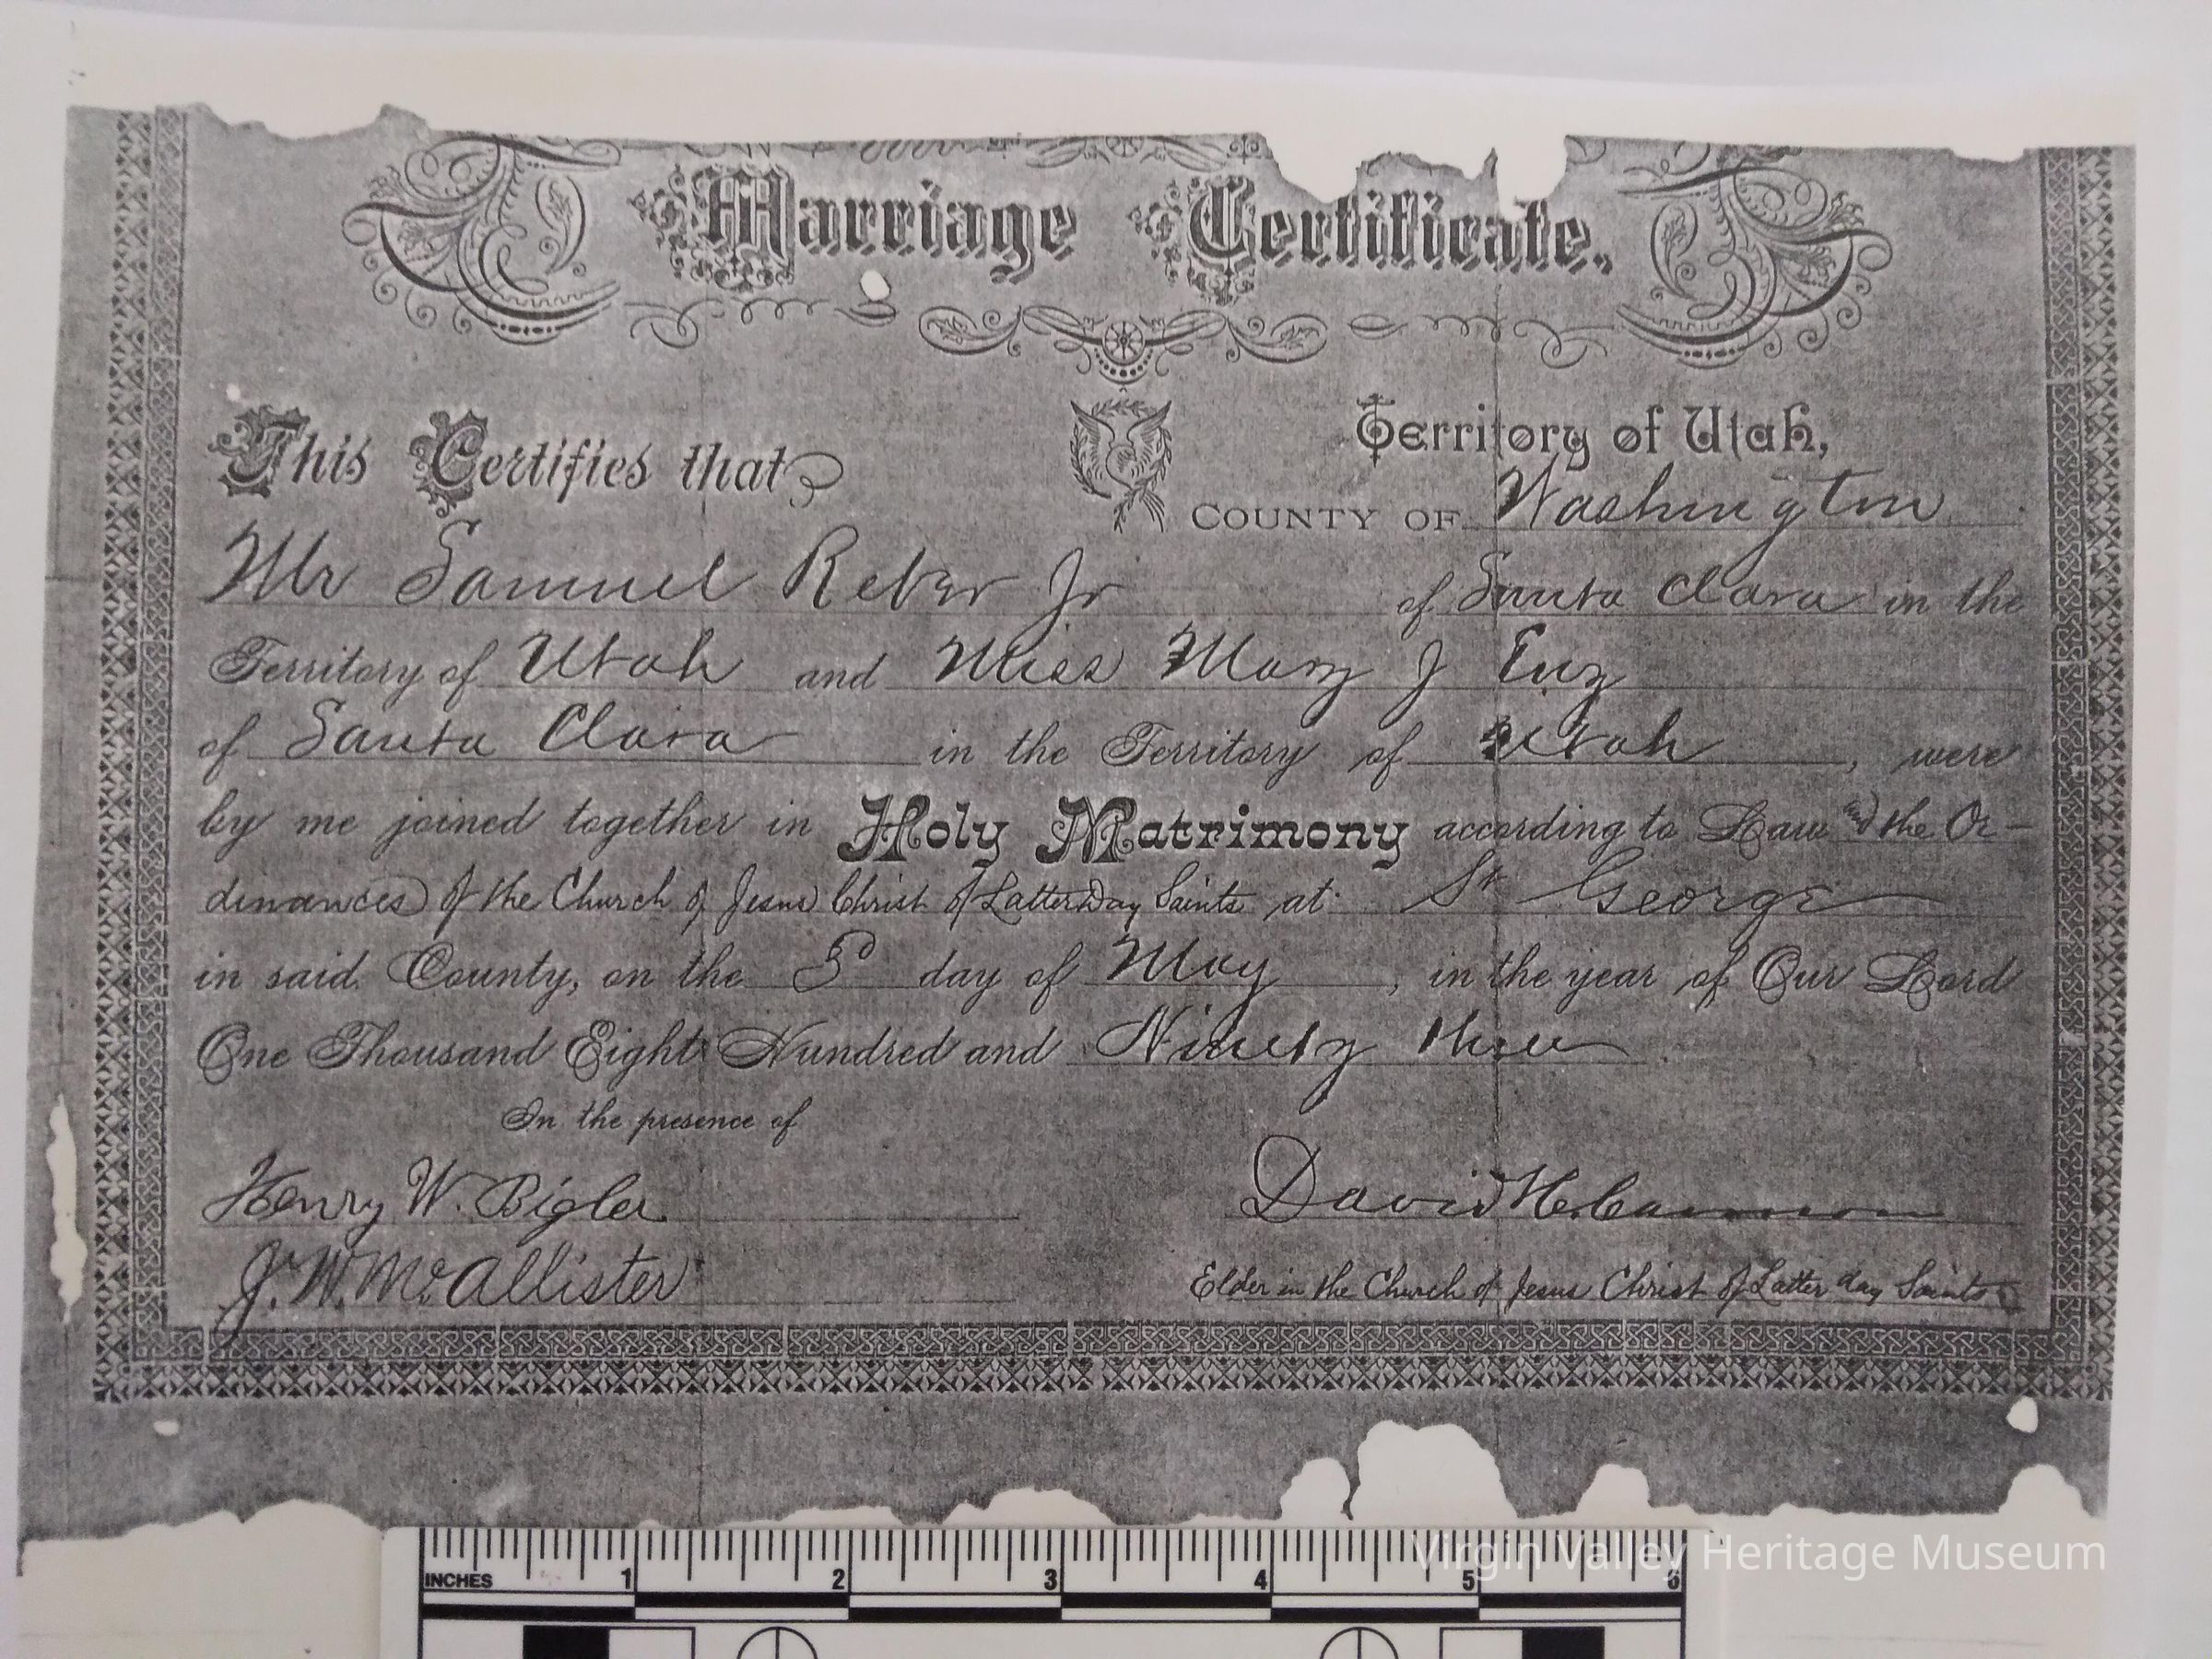 Marriage Certificate.
This Certifies that
Territory of Utah,
COUNTY OF Washington
Mr Samuel Reber Jr of Santa Clara in the
Territory of Utah and Miss Mary J Enz
of Santa Clara in the Territory of Utah, were
by me joined together in Holy Matrimony according to Law and the Or-
dinances of the Church of Jesus Christ of Latter Day Saints at St George
in said County, on the day of May, in the year of Our Lord
One Thousand Eight Hundred and Ninety three
In the presence of
Henry W. Bigler
David H. Cannon
J. W. McAllister
Elder in the Church of Jesus Christ of Latter day Saints
Virgin Valley Heritage Museum
INCHES 1 2 3 4 5 6